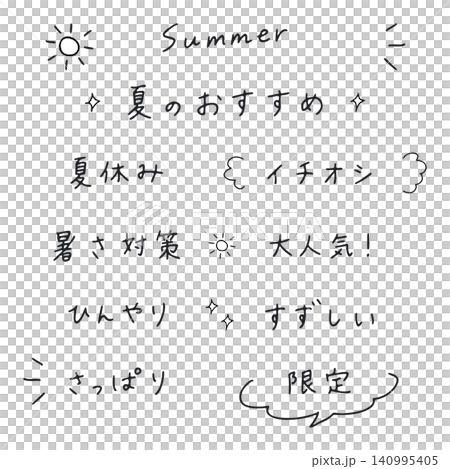 Summer
夏のおすすめ
夏休み イチオシ
暑さ対策 大人気!
ひんやり すずしい
さっぱり 限定
140995405